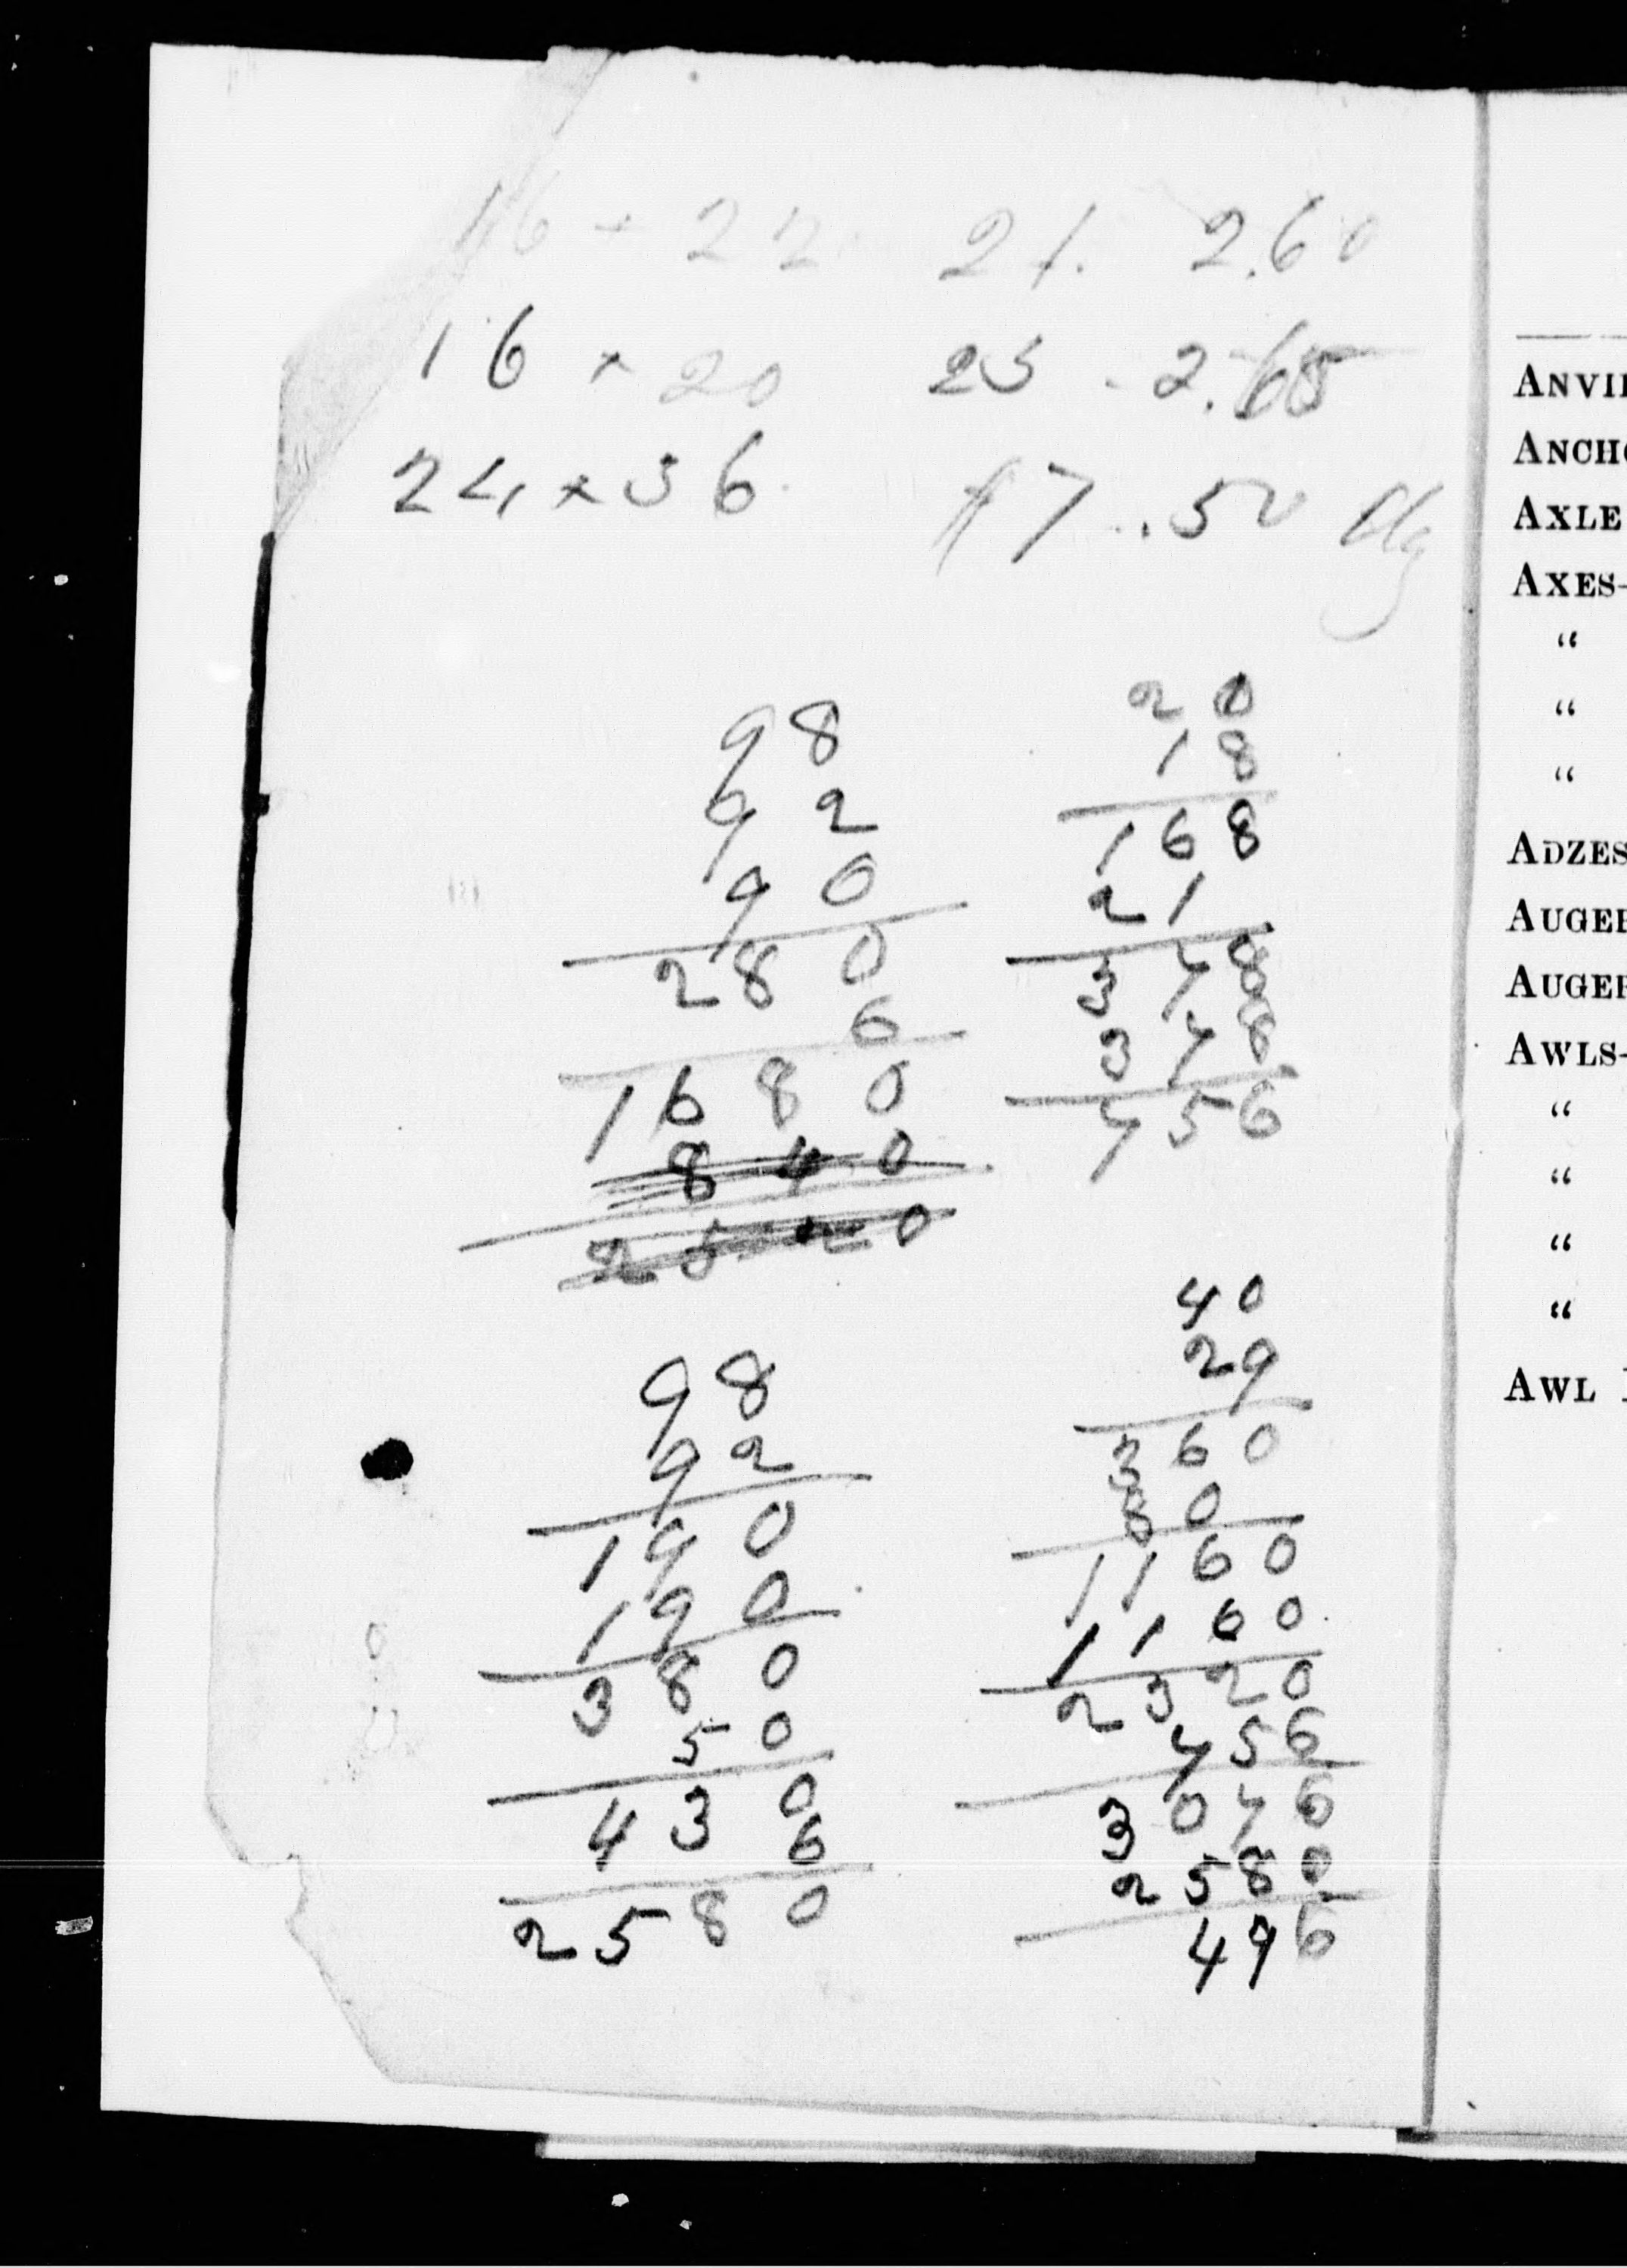 16 × 22 21. 2.60
16 × 20 23 - 2.65
24 × 36 $7..50
98
92
90
280
6
1680
840
2520
20
18
168
21
378
378
756
98
92
190
190
380
50
430
6
2580
40
29
360
80
1160
1160
2320
756
3076
2580
496
ANVI
ANCH
AXLE
AXES-
“
“
“
ADZES
AUGE
AUGE
AWLS-
“
“
“
“
AWL